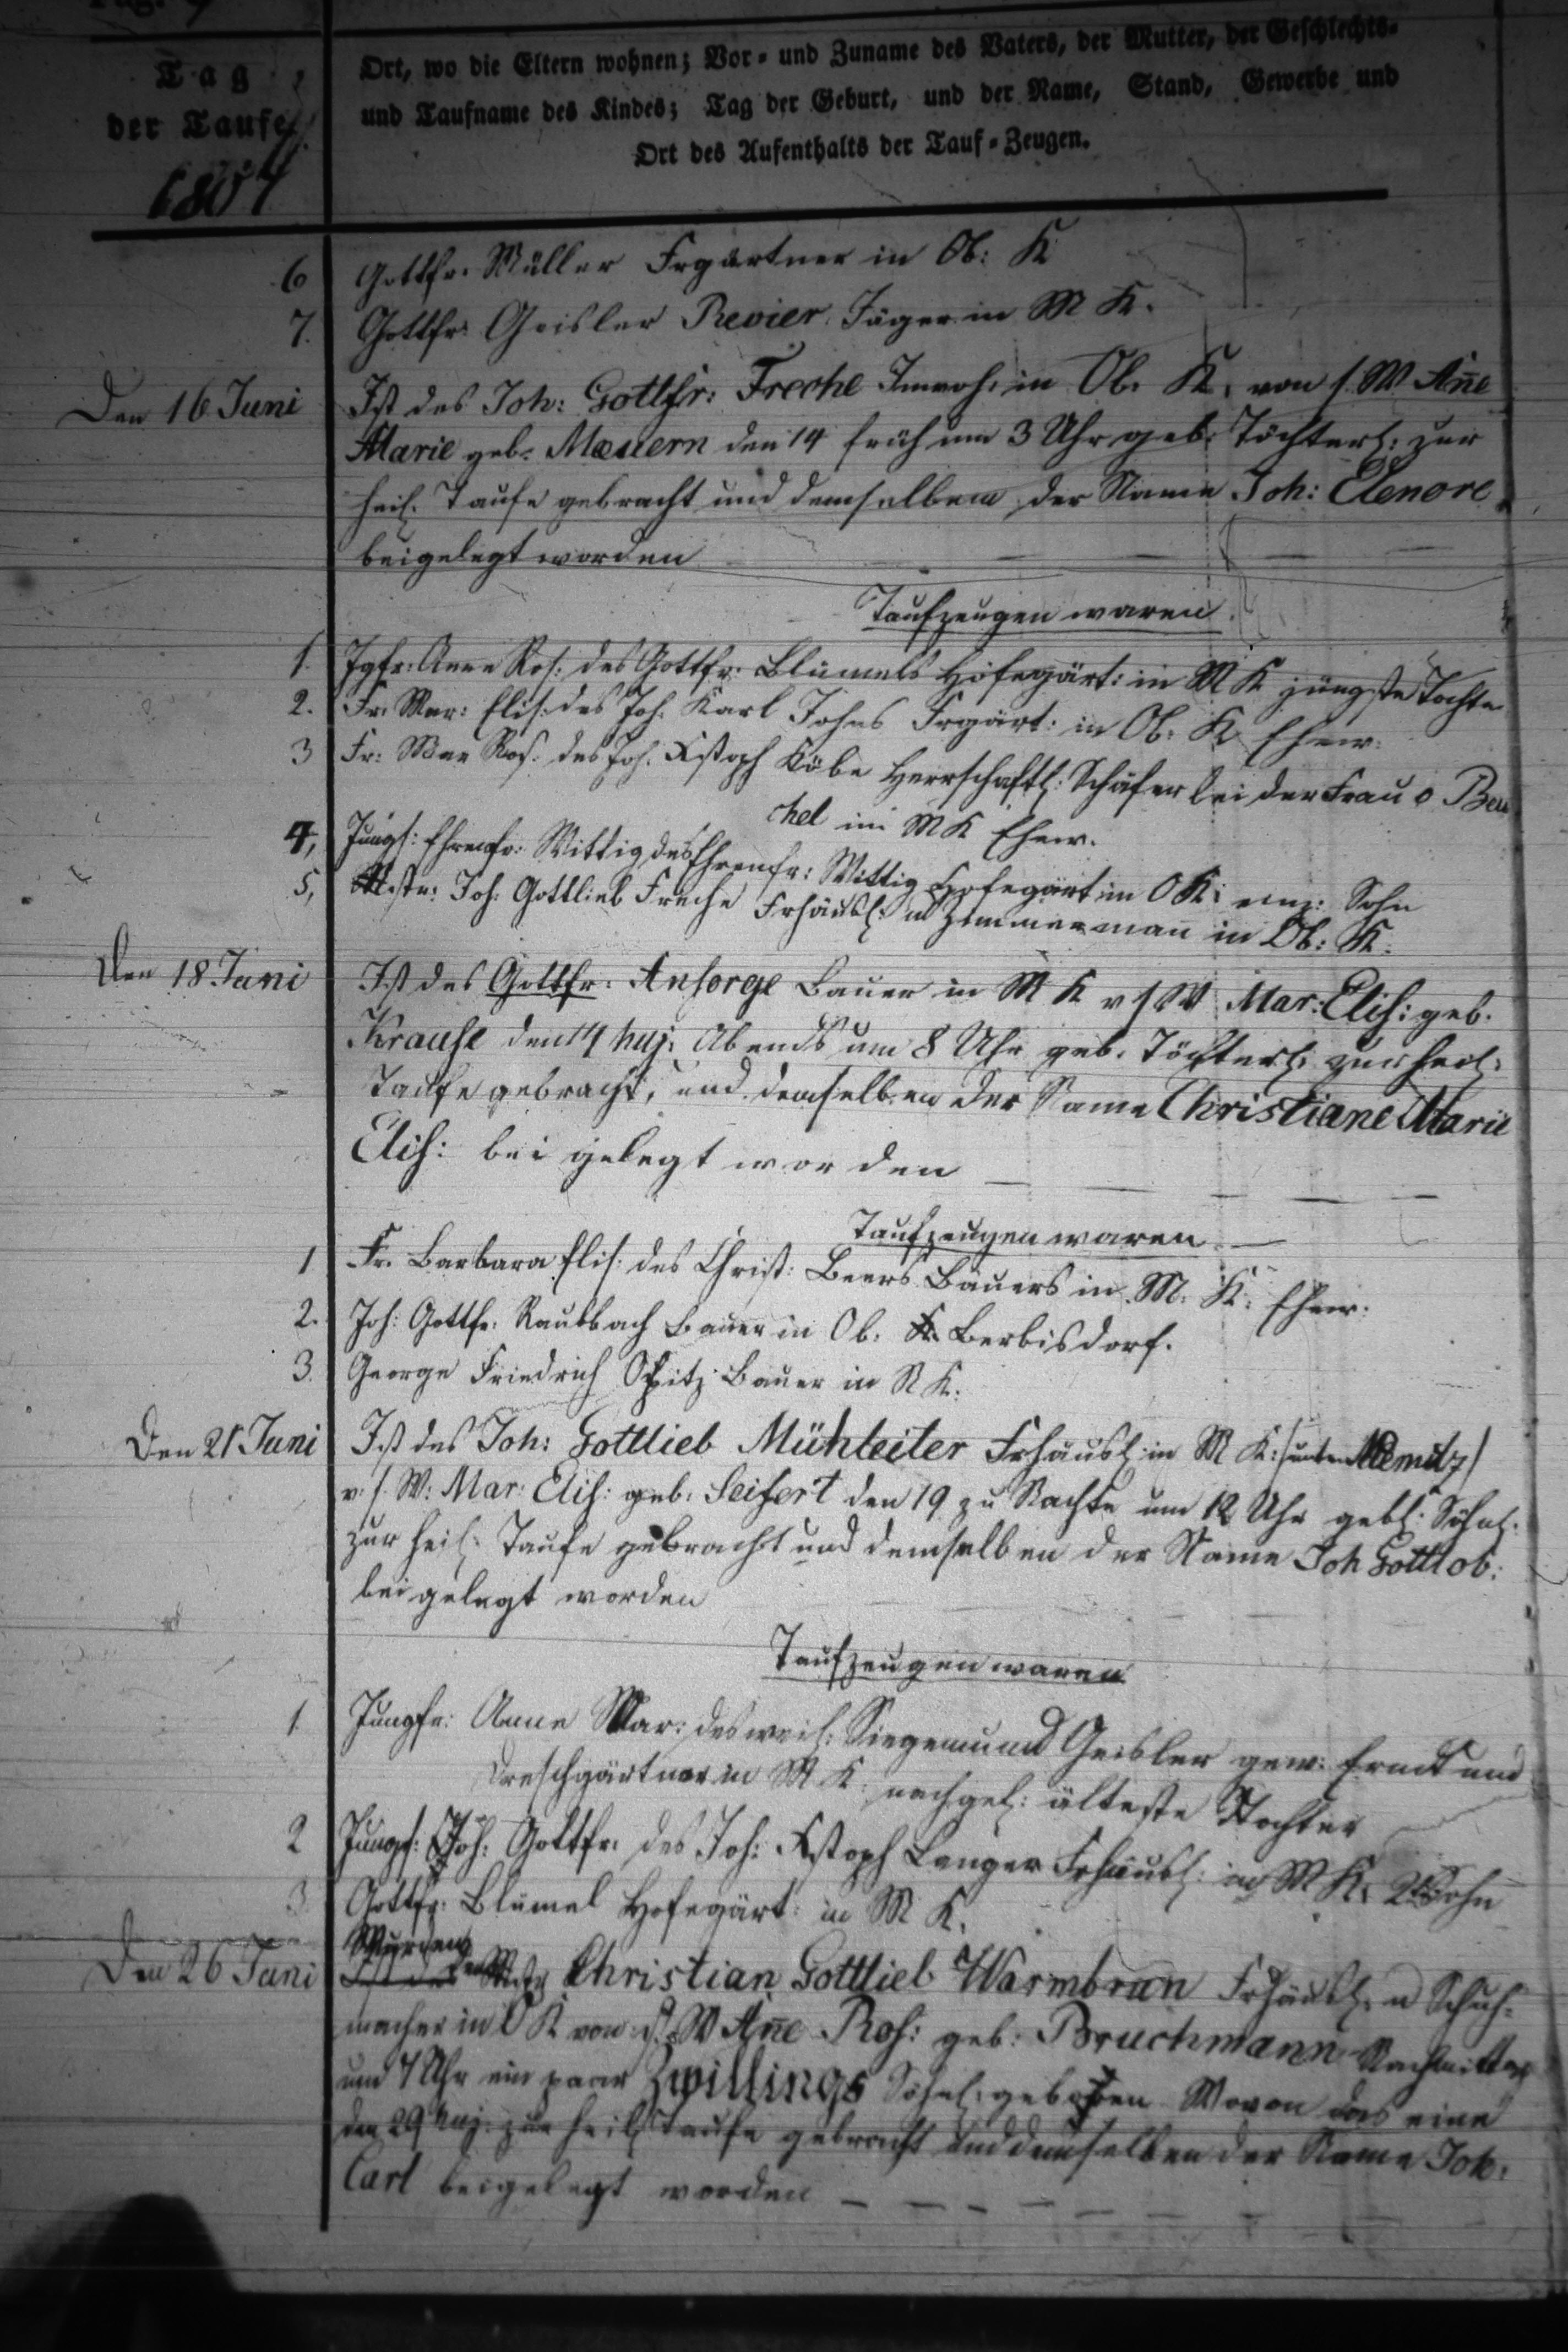 Tag
der Taufe
1804
Ort, wo die Eltern wohnen; Vor- und Zuname des Vaters, der Mutter, der Geschlechts-
und Taufname des Kindes; Tag der Geburt, und der Name, Stand, Gewerbe und
Ort des Aufenthalts der Tauf-Zeugen.
6 Gottfr. Müller Frgärtner in Ob: K
7. Gottfr: Geisler Revier Jäger in M K.
Den 16 Juni Ist des Joh: Gottfr: Freche Inwoh: in Ob. K. von s. W. Añe
Marie geb. Mauern den 14 früh um 3 Uhr geb: Töchterl: zur
heil. Taufe gebracht und demselben der Name Joh: Elenore
beigelegt worden
Taufzeugen waren
1. Jgfr: Anna Ros: des Gottfr: Blümels Hofegärt: in M K jüngste Tochter
2. Fr. Mar: Elis: des Joh. Karl Johns Frgärt: in Ob: K. Ehew:
3 Fr: Mar Ros: des Joh. Xstoph Köbe Herrschaftl: Schäfer bei der Frau v Beu
chel in M K Ehew.
4, Jungs: Ehrenfr: Wittig des Ehrenfr: Wittig Hofegärt in O K: einz: Sohn
5, Mstr: Joh: Gottlieb Freche Frhäusl: u Zimmermañ in Ob: K.
Den 18. Juni Ist des Gottfr: Ansorge Bauer in M K v s W Mar: Elis: geb.
Krause den 14 huj: Abends um 8 Uhr geb. Töchterl: zur heil:
Taufe gebracht, und demselben der Name Christiane Marie
Elis: beigelegt worden
Taufzeugen waren
1 Fr. Barbara Elis: des Christ: Beers Bauers in M. K: Ehew:
2. Joh: Gottfr. Raubbach Bauer in Ob: Berbisdorf.
3. George Friedrich Opitz Bauer in N K.
Den 21 Juni Ist des Joh: Gottlieb Mühleiter Frhäusl: in M K:
v. s. W: Mar: Elis: geb: Seifert den 19 zu Nachts um 12 Uhr geb: Söhnl:
zur heil: Taufe gebracht und demselben der Name Joh Gottlob:
beigelegt worden
Taufzeugen waren
1. Jungfr: Anne Mar: des weil: Siegemund Geisler gew:
Dreschgärtner in M K nachgel: älteste Tochter
2 Jungs: Joh: Gottfr. des Joh: Xstoph Langer Frhäusl: in M K. Sohn
3. Gottfr: Blümel Hofegärt: in M K.
Wurden
Den 26 Juni Ist des dem Mstr Christian Gottlieb Warmbrun Frhäusl: u Schuh-
macher in O K von s. W Añe Ros: geb: Bruchmann Nachmittag
um 7 Uhr ein paar Zwillings Söhnl: geboren Wovon das eine
den 29 huj: zur heil Taufe gebracht und demselben der Name Joh:
Carl beigelegt worden